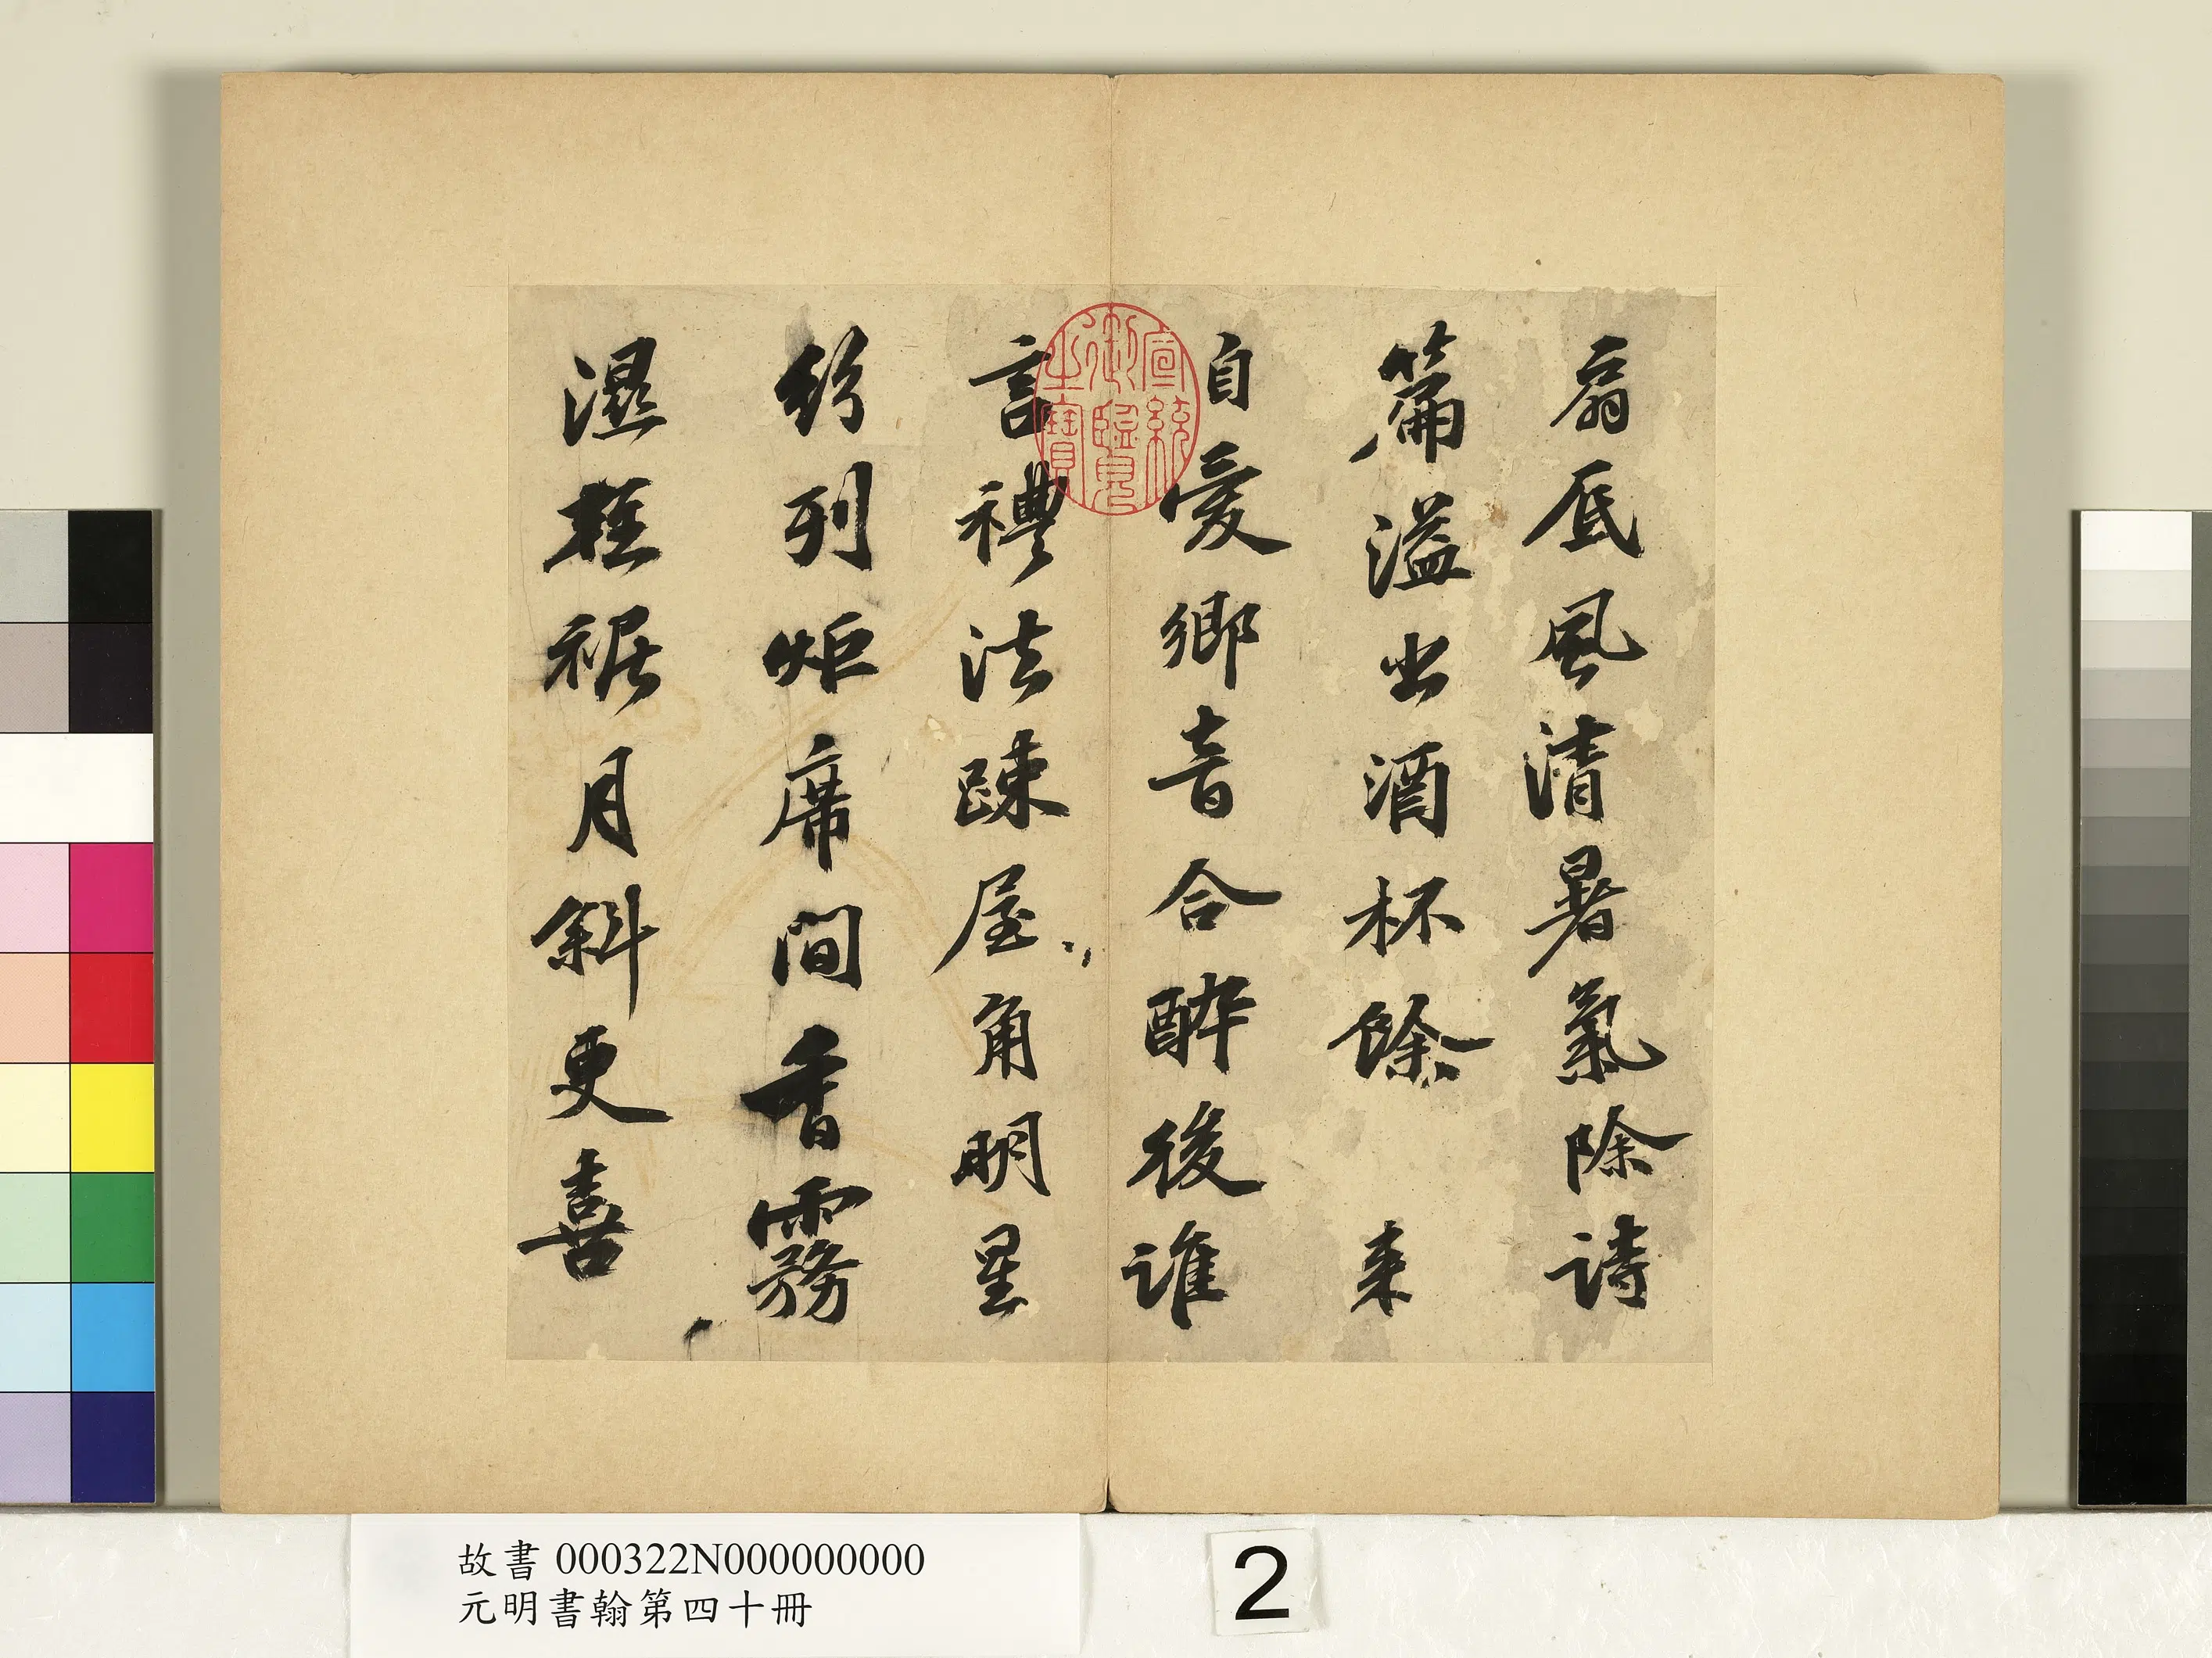 扇底風清暑氣除詩
篇溢出酒杯餘 来
自愛鄉音合醉後誰
言禮法踈屋角明星
紛列炬席間香霧
濕輕裾月斜更喜
宣統御覽之寶
故書 000322N000000000
元明書翰第四十冊
2